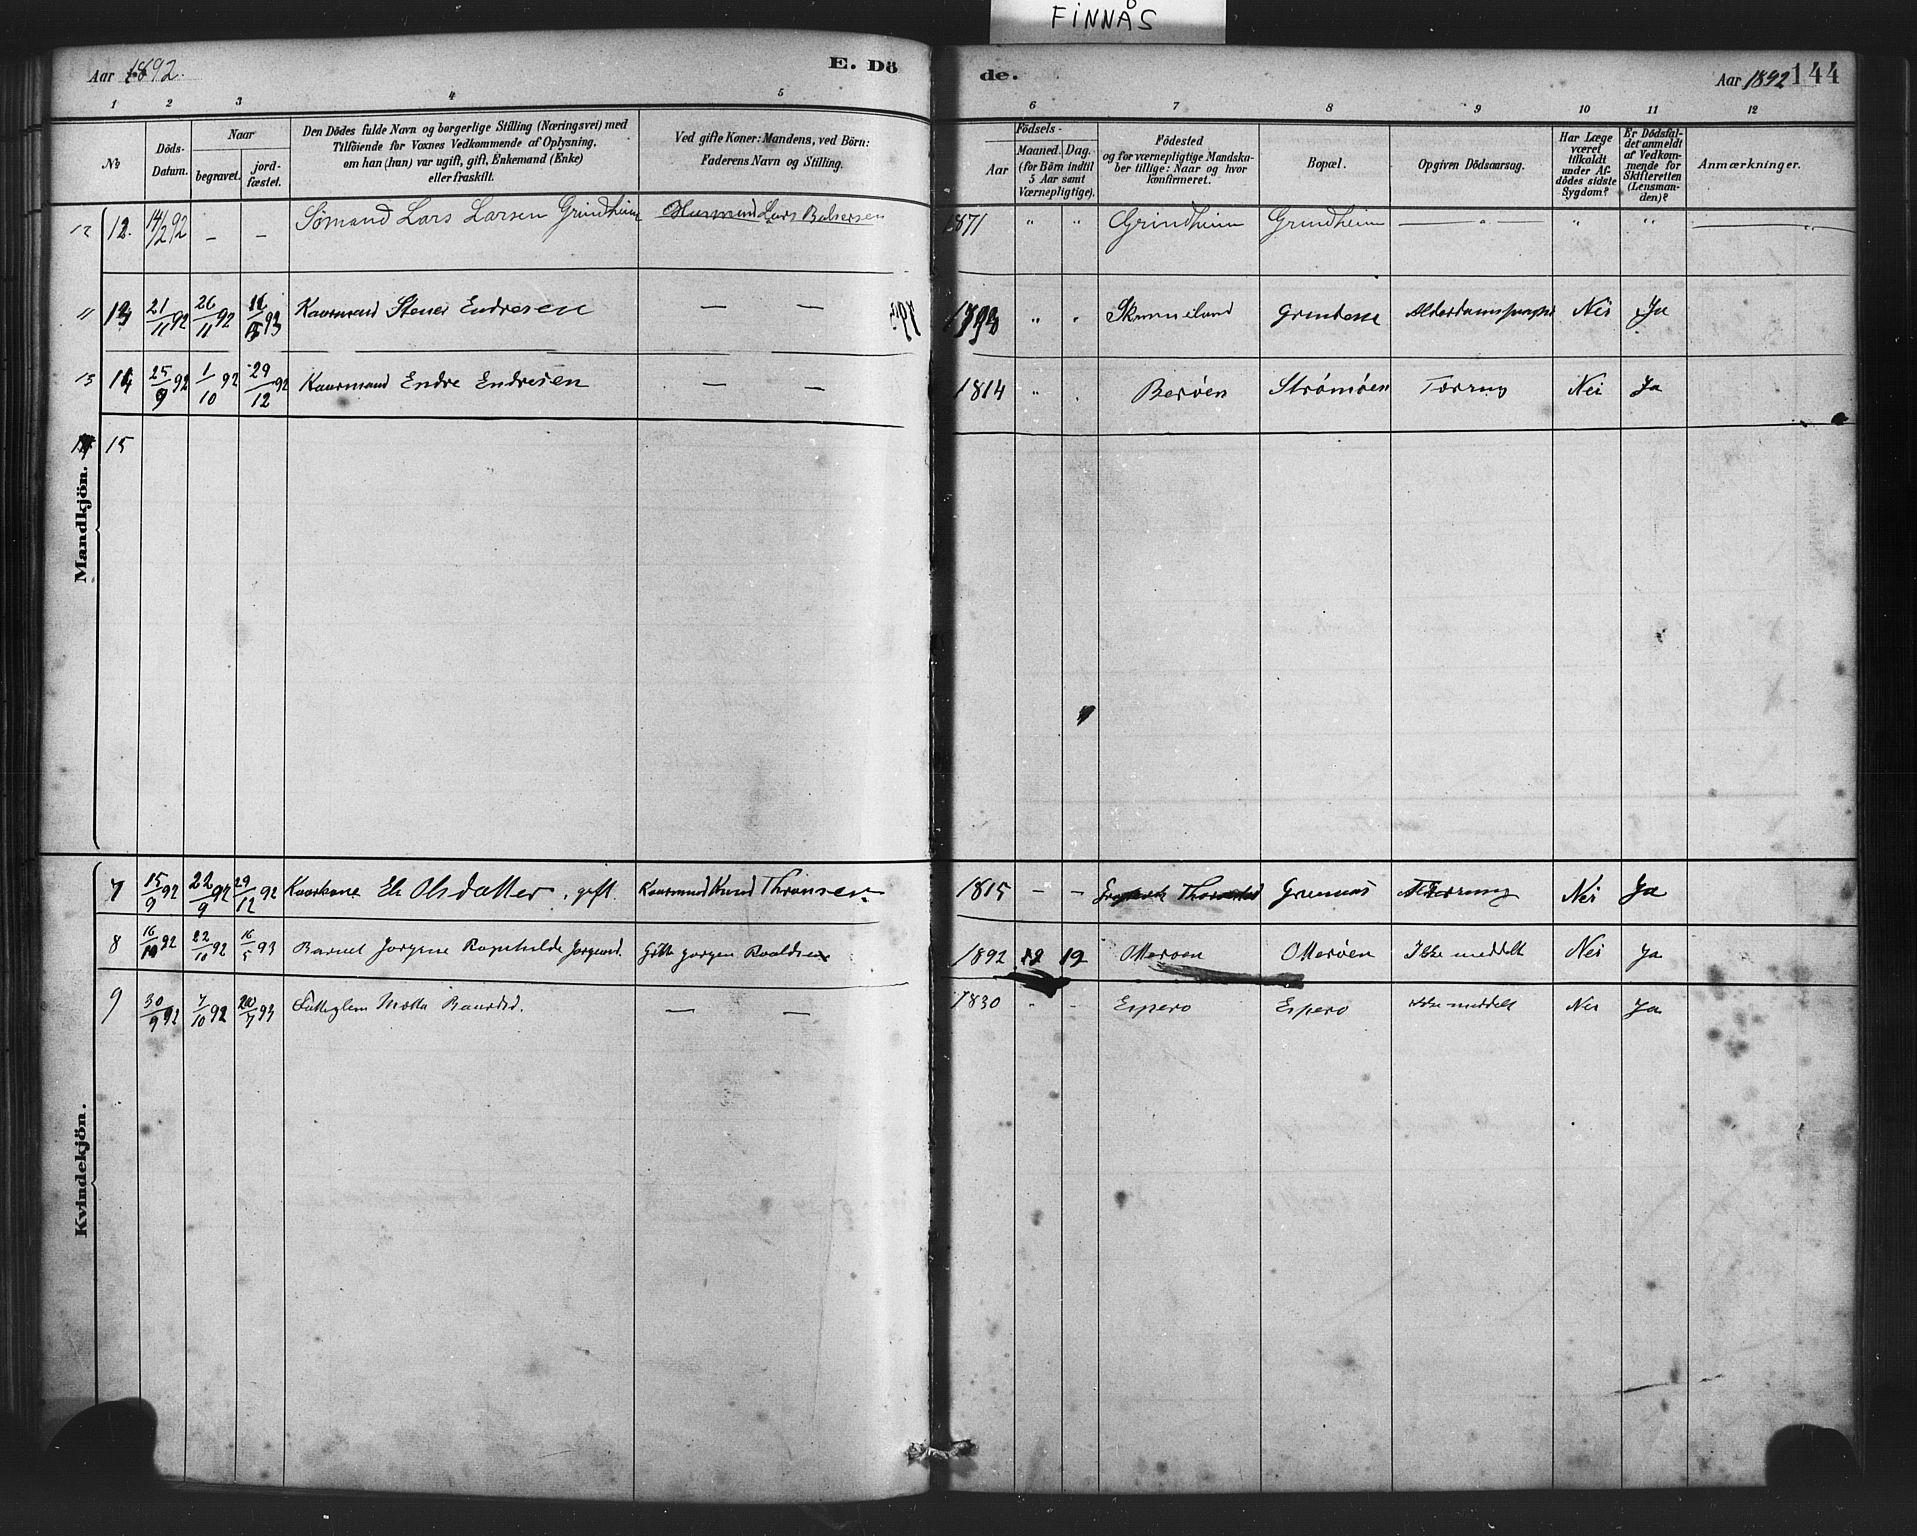 FINNÅS
Aar 1892.
E. Dö
de.
Aar 1892 144
1 2 3 4 5 6 7 8 9 10 11 12
No
Döds-
Datum.
Naar
begravet.
jord-
fæstet.
Den Dödes fulde Navn og borgerlige Stilling (Næringsvei) med
Tilföiende for Voxnes Vedkommende af Oplysning,
om han (hun) var ugift, gift, Enkemand (Enke)
eller fraskilt.
Ved gifte Koner: Mandens, ved Börn:
Faderens Navn og Stilling.
Födsels-
Aar
Maaned. Dag.
(for Börn indtil
5 Aar samt
Værnepligtige).
Födested
og for værnepligtige Mandska-
ber tillige: Naar og hvor
konfirmeret.
Bopæl.
Opgiven Dödsaarsag.
Har Læge
været
tilkaldt
under Af-
dödes sidste
Sygdom?
Er Dödsfal-
det anmeldt
af Vedkom-
mende for
Skifteretten
(Lensman-
den)?
Anmærkninger.
12 12. 14/2 92 – – Sömand Lars Larsen Grindheim Husmand Lars 1871 " " Grindheim Grindheim " " "
11 13 21/11 92 26/11 92 93 Kaarmand Endresen — — " Nei Ja
13 14 25/9 92 1/10 92 29/12 92 Kaarmand Endre Endresen — — 1814 " Beröen Strömöen Tæring Nei Ja
15
Mandkjön.
7 15/9 92 22/9 92 29/12 92 Kaarkone Eli Olsdatter, gift. Kaarmand Knud Thronsen. 1815 – – Nei Ja
8 16/10 92 22/10 92 16/5 93 Barnet Jorgine Ragnhilde Jorgensd. Gifte Jorgen Roaldsen 1892 12 Ikke meddelt Nei Ja
9 30/9 92 7/10 92 20/7 93 Fattiglem Baardsd. — — 1830 Espero Espero Ikke meddelt Nei Ja
Kvindekjön.